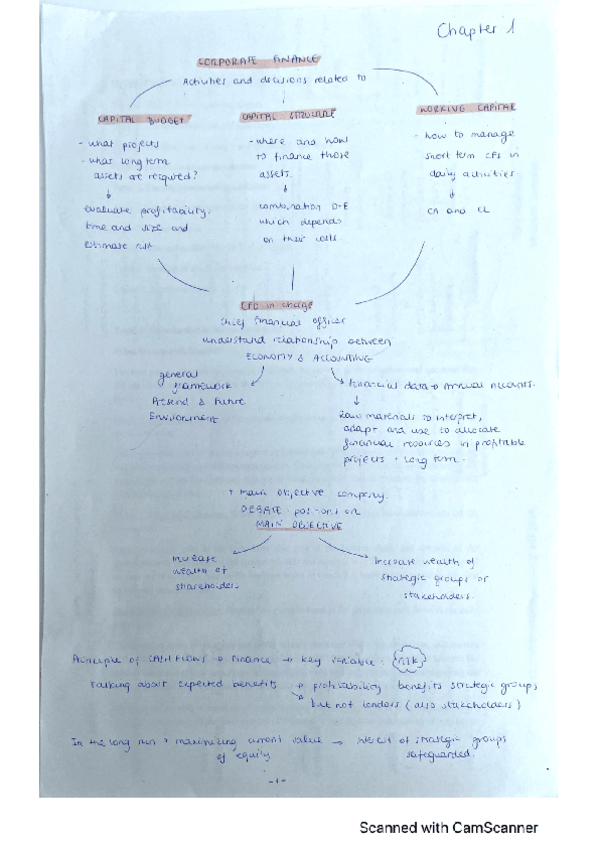 Chapter 1
CORPORATE FINANCE
Activities and decisions related to
CAPITAL BUDGET
- what projects
- what long term
assets are required?
↓
evaluate profitability,
time and size and
estimate risk
CAPITAL STRUCTURE
- where and how
to finance those
assets.
↓
combination D-E
which depends
on their costs
WORKING CAPITAL
- how to manage
short term CFs in
daily activities
↓
CA and CL
CFO in charge
Chief financial officer
understand relationship between
ECONOMY & ACCOUNTING
general
framework
Present & Future
Environment
financial data → Annual Accounts.
↓
Raw materials to interpret,
adapt and use to allocate
financial resources in profitable
projects + long term.
+ main objective company.
DEBATE: positions on
MAIN OBJECTIVE
Increase
wealth of
shareholders.
Increase wealth of
strategic groups or
stakeholders.
Principle of CASH FLOWS → Finance → key variable: RISK
Talking about expected benefits → profitability benefits strategic groups
but not lenders (also stakeholders)
In the long run → maximizing current value → interest of strategic groups
of equity safeguarded.
-1-
Scanned with CamScanner